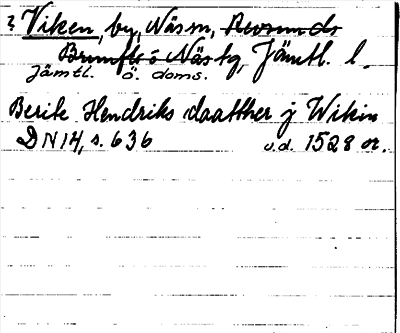 ? Viken, by, Näs sn, Revsunds
Brunflo o Näs tg, Jämtl. l.
Jämtl. ö. doms.
Berite Hendriks daatther j Wikin
DN 14, s. 636 u.d. 1528 or.